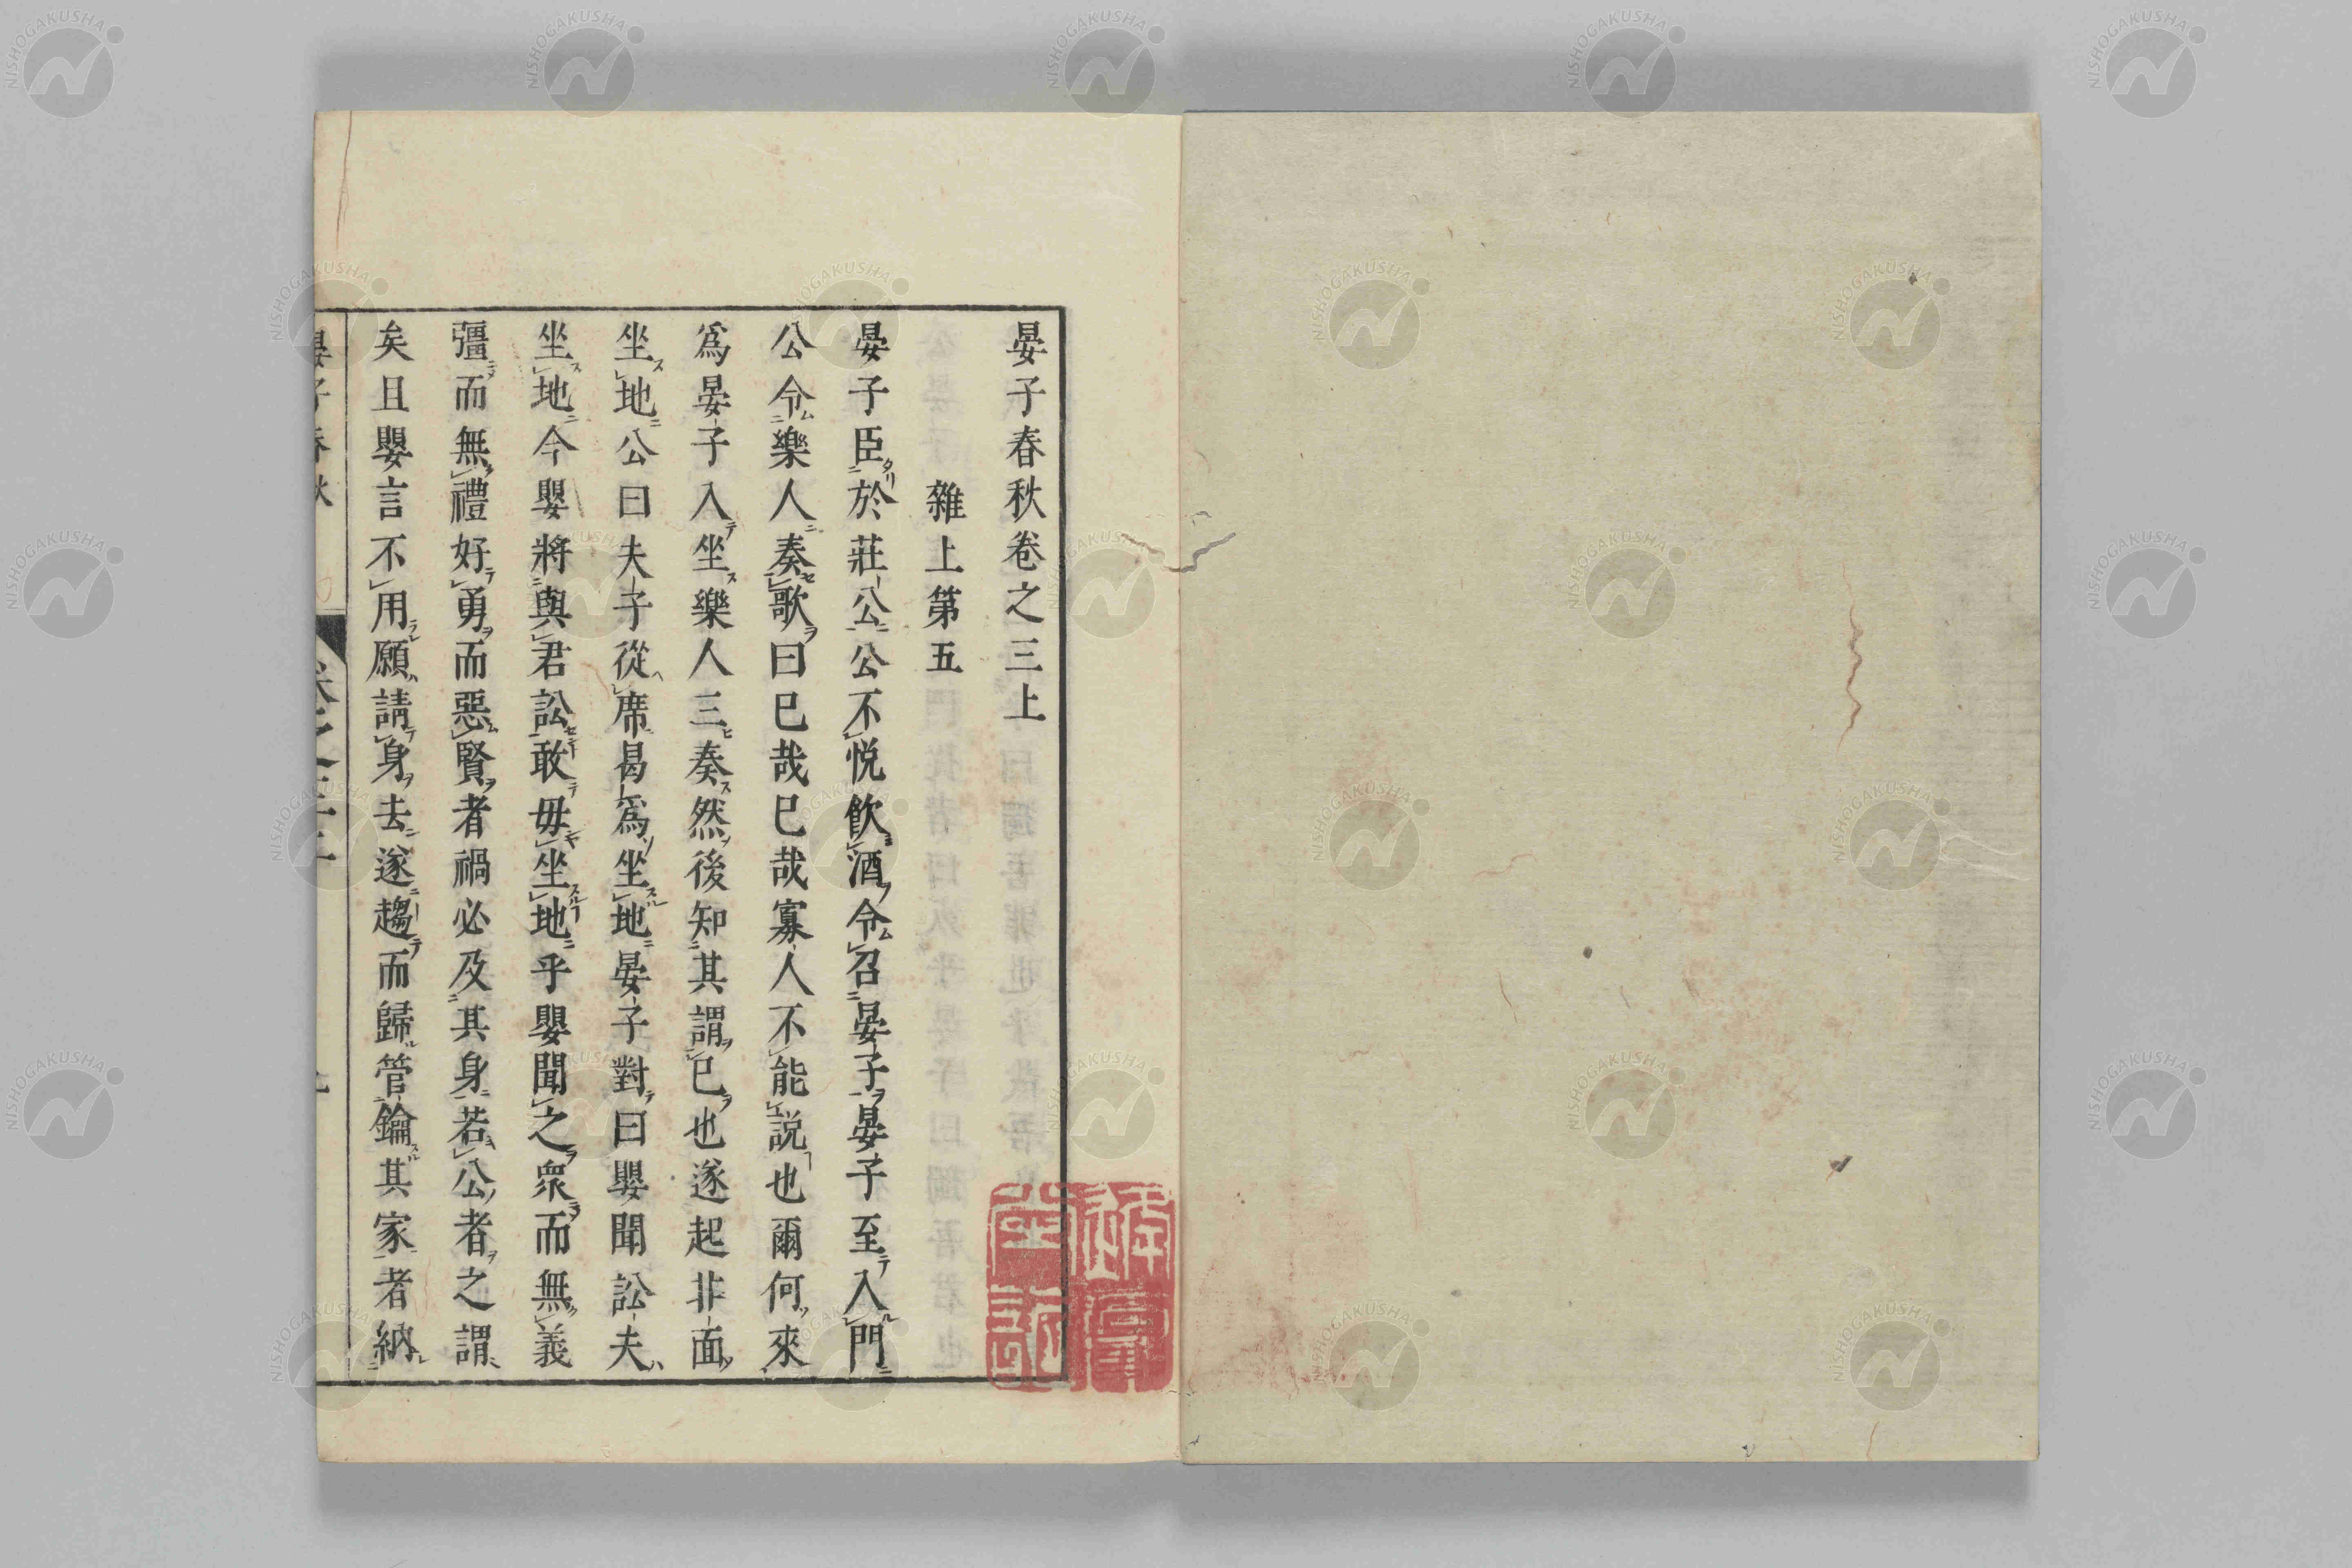 晏子春秋卷之三上
雜上第五
晏子臣於莊公公不悦飲酒令召晏子晏子至入門
公令樂人奏歌曰已哉已哉寡人不能説也爾何來
爲晏子入坐樂人三奏然後知其謂已也遂起非面
坐地公曰夫子從席曷爲坐地晏子對曰嬰聞訟夫
坐地今嬰將與君訟敢毋坐地乎嬰聞之衆而無義
彊而無禮好勇而惡賢者禍必及其身若公者之謂
矣且嬰言不用願請身去遂趨而歸管鑰其家者納
晏子春秋
卷之三上
NISHOGAKUSHA